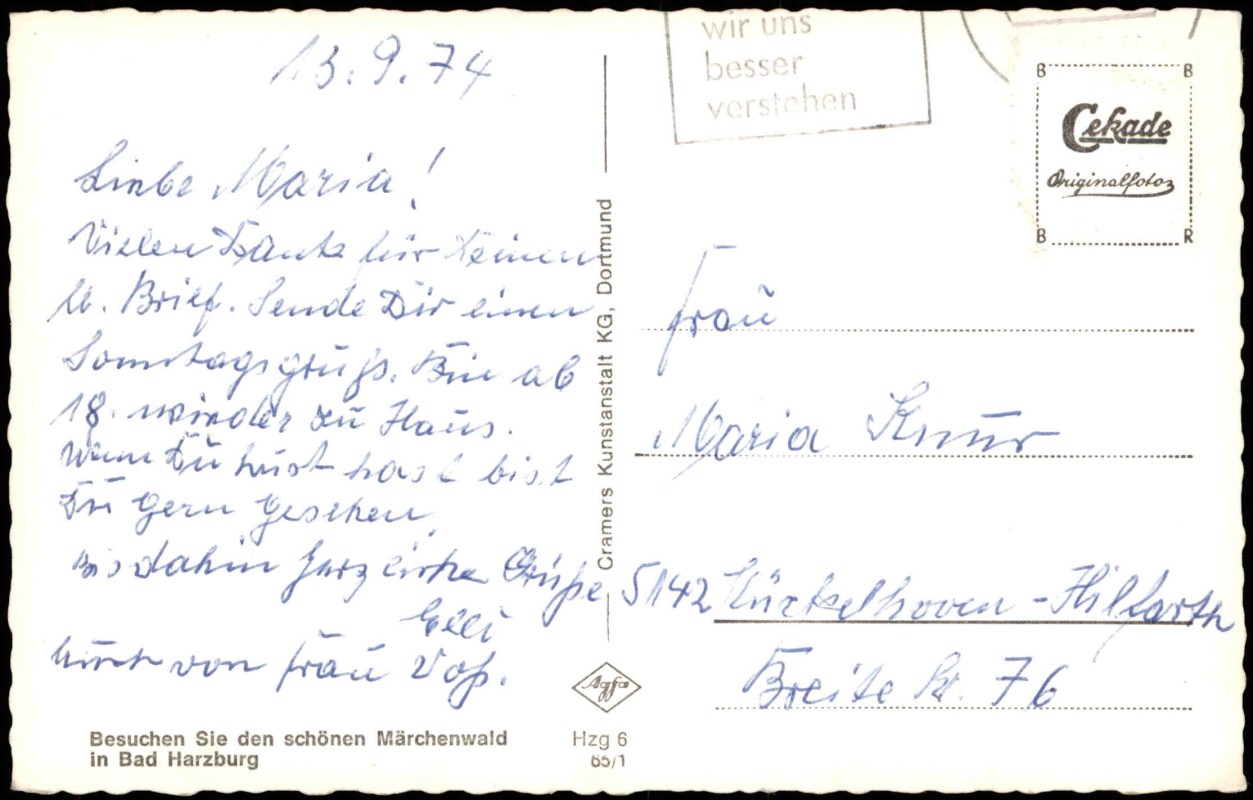 13.9.74
Liebe Maria!
Vielen Dank für Deinen
lb. Brief. Sende Dir einen
Sonntagsgruß. Bin ab
18. wieder zu Haus.
Wenn Du Lust hast bist
Du gern gesehen,
Bis dahin herzliche Grüße
Elli
von Frau Voß.
Besuchen Sie den schönen Märchenwald
in Bad Harzburg
Hzg 6
65/1
Cramers Kunstanstalt KG, Dortmund
Agfa
wir uns
besser
verstehen
B B
Cekade
Originalfoto
B R
Frau
Maria Knur
5142 Hückelhoven-Hilfarth
Breite Str. 76